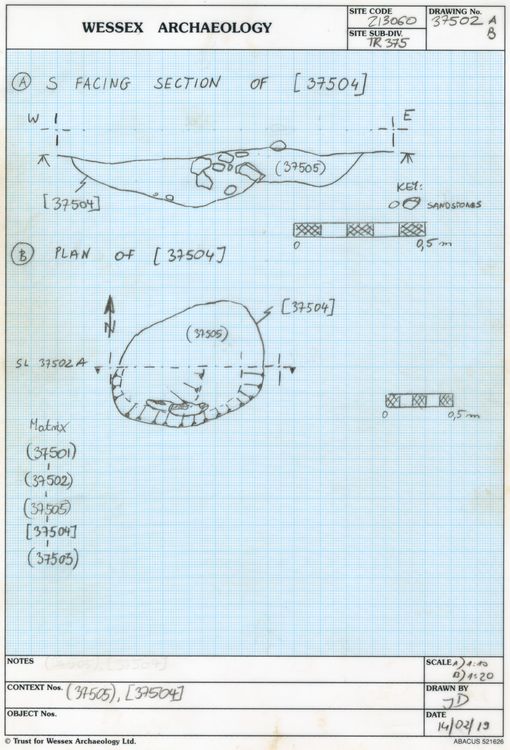 WESSEX ARCHAEOLOGY
SITE CODE
213060
SITE SUB-DIV.
TR 375
DRAWING No.
37502 A
B
A S FACING SECTION OF [37504]
W
E
(37505)
[37504]
KEY:
SANDSTONES
0 0,5 m
B PLAN OF [37504]
N
[37504]
(37505)
SL 37502 A
0 0,5 m
Matrix
(37501)
(37502)
(37505)
[37504]
(37503)
NOTES (37505), [37504]
CONTEXT Nos. (37505), [37504]
OBJECT Nos.
SCALE A) 1:10
B) 1:20
DRAWN BY
JD
DATE
14/02/19
© Trust for Wessex Archaeology Ltd.
ABACUS 521626